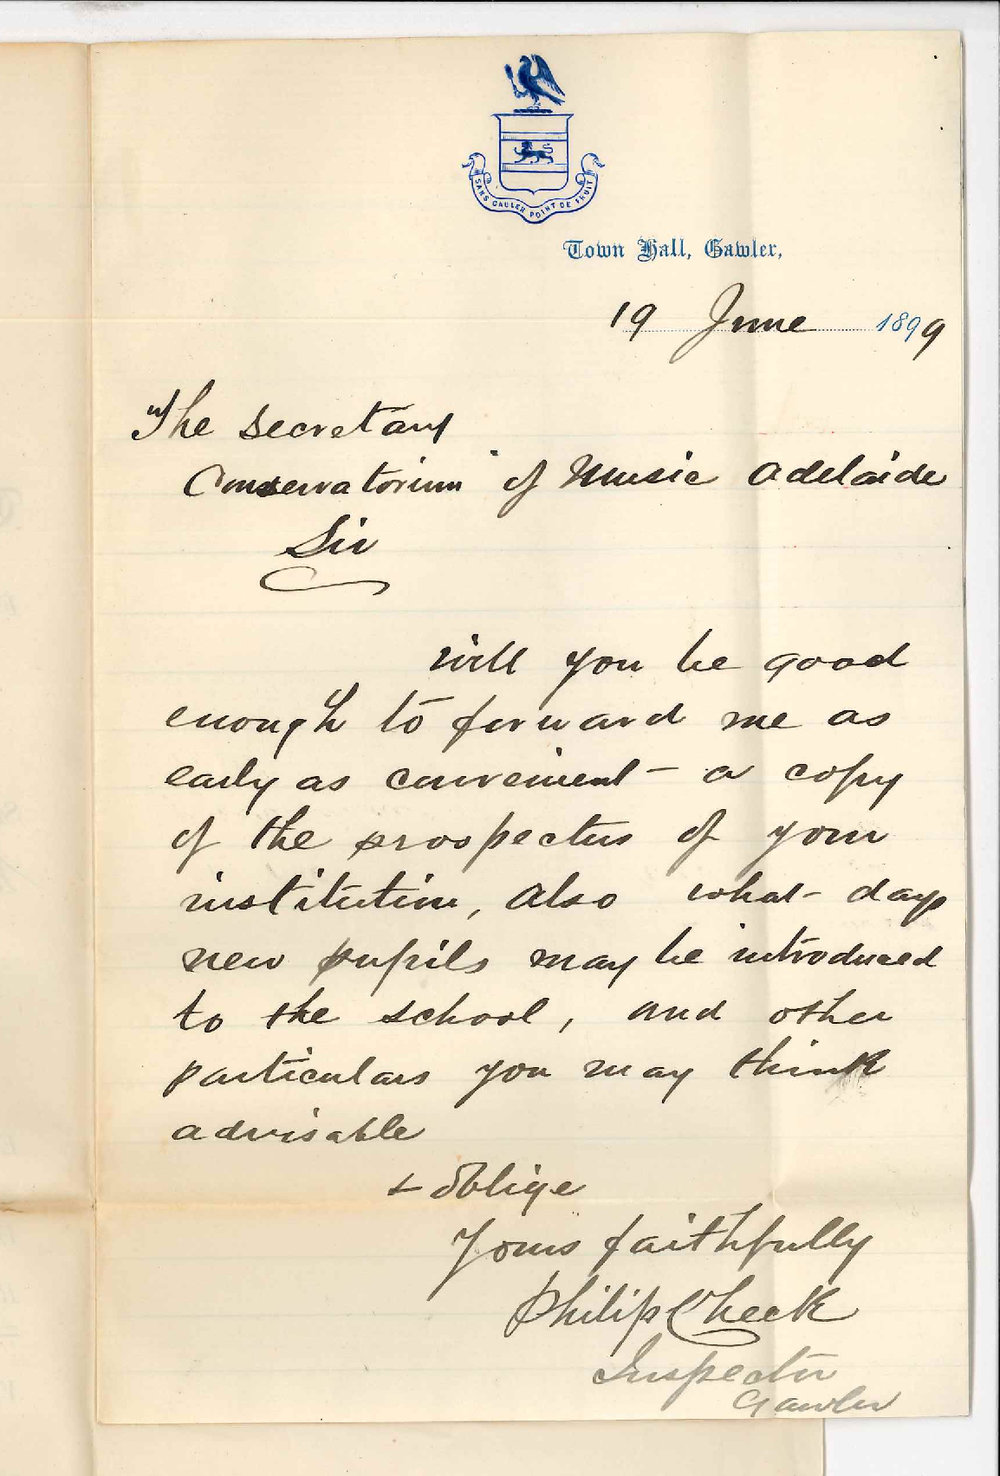 SANS GAULER POINT DE FRUIT
Town Hall, Gawler,
19 June 1899
The Secretary
Conservatorium of Music Adelaide
Sir
will you be good
enough to forward me as
early as convenient - a copy
of the prospectus of your
institution, also what days
new pupils may be introduced
to the school, and other
particulars you may think
advisable
& oblige
Yours faithfully
Philip Cheek
Inspector
Gawler